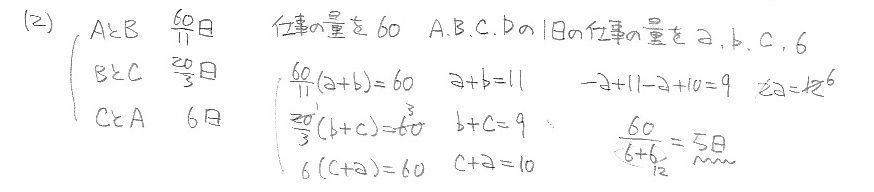 (2) AとB 60/11日 仕事の量を60 A.B.C.Dの1日の仕事の量をa,b,c,6
BとC 20/3日 60/11(a+b)=60 a+b=11 -a+11-a+10=9 2a=12 6
CとA 6日 20/3(b+c)=60 1 3 b+c=9 60/(6+6)=5日 12
6(c+a)=60 c+a=10